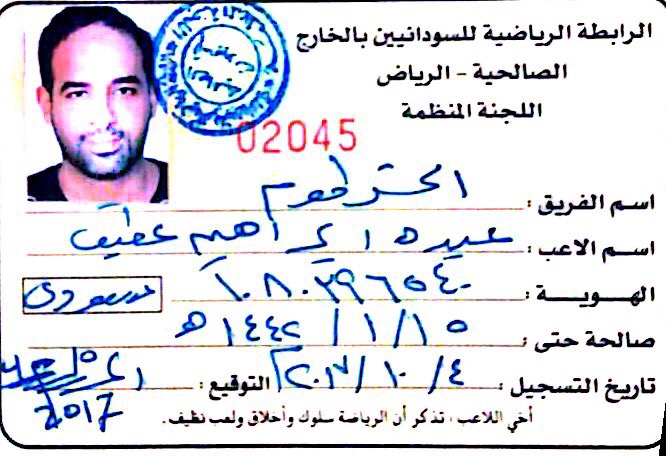 الرابطة الرياضية للسودانيين بالخارج
الصالحية - الرياض
اللجنة المنظمة
02045
اسم الفريق : الخرطوم
اسم الاعب : عبده ابراهيم عطيف
الهوية : ١٠٨٠٣٩٦٥٤٠ سعودي
صالحة حتى : ١٤٤٢/١/١٥ هـ
تاريخ التسجيل : ٢٠١٧/١٠/٤ التوقيع :
2017
أخي اللاعب ، تذكر أن الرياضة سلوك وأخلاق ولعب نظيف.